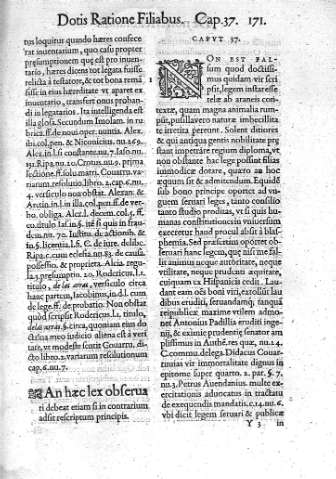 Dotis Ratione Filiabus. Cap. 37. 171.
tus loquitur quando hæres confecerat
inuentarium, quo casu propter
præsumptionem quæ est pro inuentario,
hæres dicens tot legata fuisse
relicta à testatore, & tot bona remansisse
in eius hæreditate vt aparet ex
inuentario, transfert onus probandi
in legatarios. Ita intelligenda est
illa glosa. Secundum Imolam. in rubrica.
ff. de noui oper. nuntia. Alex.
ibi. col. pen. & Niconicius. nu.169.
Alex. in l. si constante nu.7. Iaso nu.
91. Ripa. nu.
prima
sectione. ff. solu matri. Couarru. variarum
resolutio. libro. 2. cap. 6. nu.
4. versiculo non obstat. Alexan. &
Aretin. in l. in illa. col. pen. ff. de verbo.
obliga. Alex. l. decem. col. 5. ff.
eo. titulo
in
in
delic.
Ripa. c. cum ecclesia. nu. 83. de causa.
possessio. & proprieta.
20. Rodericus. l.1.
titulo, de las arras, versiculo circa
hanc partem, Iacobinus, in d. l. cum
de lege. ff. de probatio. Non obstat
quod scripsit Rodericus. l.1. titulo,
dela arras. §. circa, quoniam eius doctrina
meo iudicio aliena est à veritate,
vt modeste sensit Couarru,
libro. 2. variarum resolutionum
cap. 6. nu. 7.
An hæc lex obseruati
debeat etiam si in contrarium
adsit rescriptum principis.
CAPVT 37.
NON EST FALsum
quod doctissimus
quidam vir scripsit,
legem instar esse
telæ ab araneis contextæ,
quam magna animalia rumpunt,
pusilla vero naturæ imbecillitate
irretita pereunt. Solent ditiores
& qui antiqua gentis nobilitate præstant
impetrare regium diploma, vt
non obstante hac lege possint filias
immodicè dotare, quarto an hoc
æquum sit & admittendum. Equidem
sub bono principe oportet ad vnguem
seruari leges, tanto consilio
tanto studio proditas, vt si quis humanas
constitutiones excussurum
execretur haud procul absit à blasphemia.
Sed præsertim oportet obseruari
hanc legem, quæ nisi me fallit
animus neque auctoritate, neque
vtilitate, neque prudenti æquitate,
cuiquam ex Hispanicis cedit. Laudant
eam oẽs boni viri, extollunt laudibus
eruditi, seruandamque, tanquã
reipublicæ maxime vtilem admonet
Antonius Padilla eruditi ingenij,
& eximio prudentis senator amplissimus
in Authẽ. res quæ, nu. 24.
C. communi. delega. Didacus Couarruuias
vir immortalitate dignus in
epitome super quarto. 2. par. §. 7,
nu.3. Petrus Auendanus. multæ exercitationis
aduocatus in tractatu
de exequendis mandatis. c. 14. nu. 6.
vbi dicit legem seruari & publicæ
Y 3 in